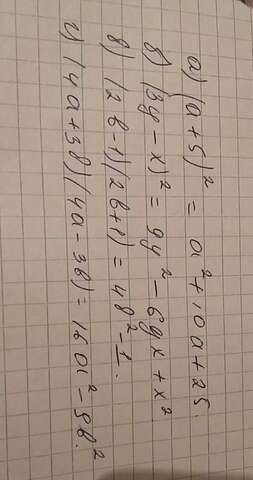 а) (a+5)² = a²+10a+25.
б) (3y-x)² = 9y²-6yx+x².
в) (2b-1)(2b+1) = 4b²-1.
г) (4a+3b)(4a-3b) = 16a²-9b².